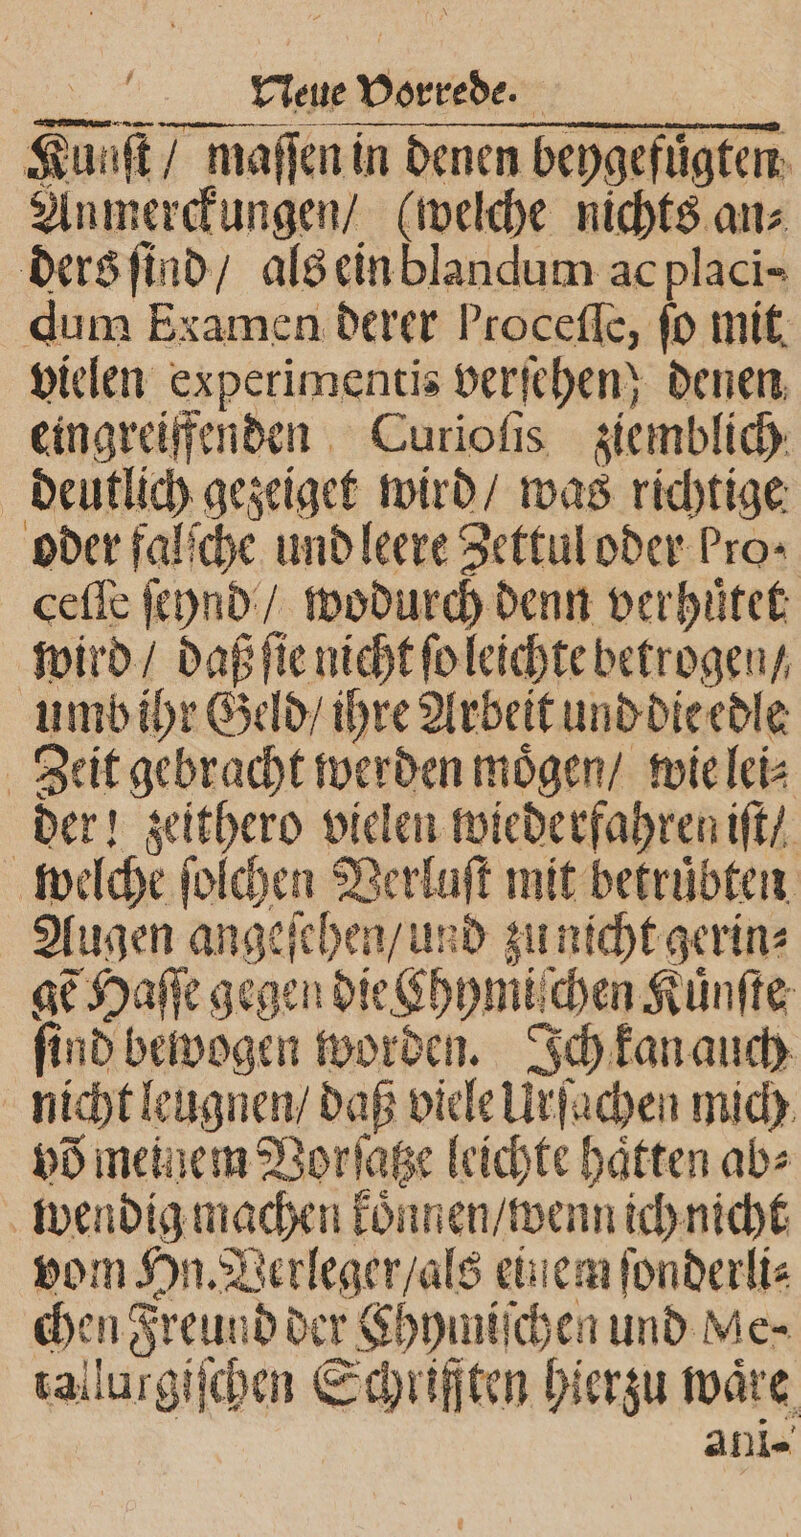 Neue Vorrede.
Kunſt / maſſen in denen beygefuͤgten
Anmerckungen/ (welche nichts an⸗
ders ſind / als ein blandum ac placi-
dum Examen derer Proceſſe, ſo mit
vielen experimentis verſehen) denen
eingreiffenden Curioſis ziemblich
deutlich gezeiget wird / was richtige
oder falſche und leere Zettul oder Pro-
ceſſe ſeynd / wodurch denn verhuͤtet
wird / daß ſie nicht ſo leichte betrogen/
umb ihr Geld/ ihre Arbeit und die edle
Zeit gebracht werden moͤgen/ wie lei⸗
der! zeithero vielen wiederfahren iſt/
welche ſolchen Verluſt mit betruͤbten
Augen angeſehen/und zu nicht gerin⸗
gẽ Haſſe gegen die Chymiſchen Kuͤnſte
ſind bewogen worden. Ich kan auch
nicht leugnen/ daß viele Urſachen mich
võ meinem Vorſatze leichte haͤtten ab⸗
wendig machen koͤnnen/wenn ich nicht
vom Hn. Verleger/als einem ſonderli⸗
chen Freund der Chymiſchen und Me-
tallurgiſchen Schrifften hierzu waͤre
ani-